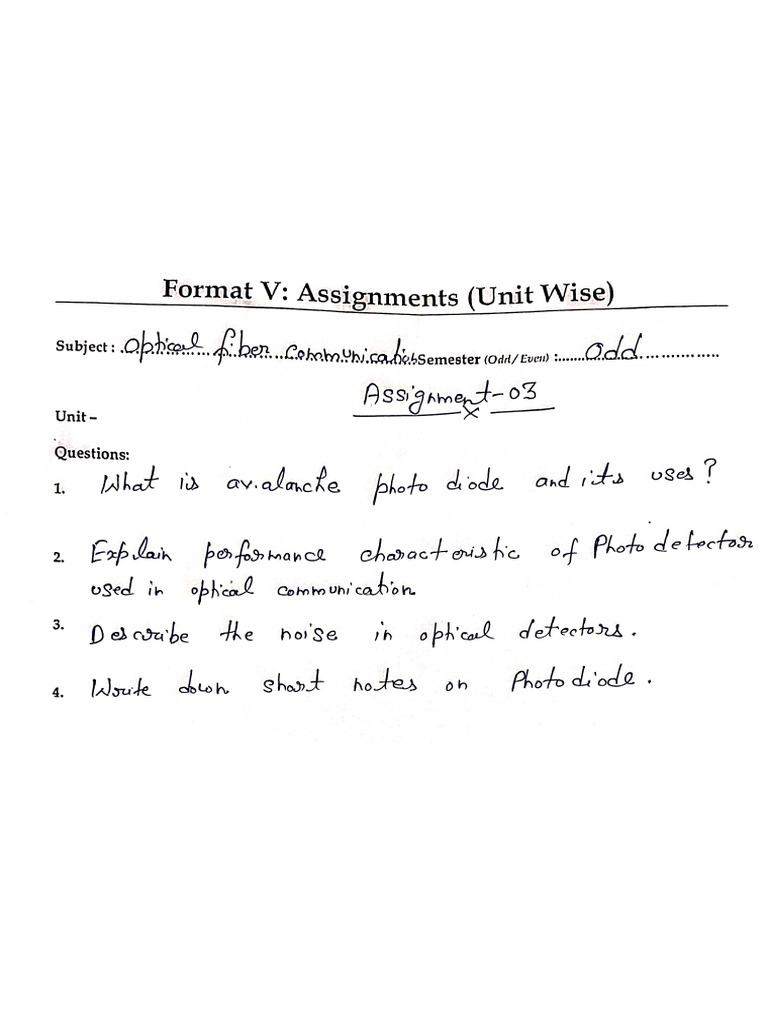 Format V: Assignments (Unit Wise)
Subject : Optical fiber communication Semester (Odd/Even) :.......Odd................
Assignment-03
Unit –
Questions:
1. What is avalanche photo diode and its uses?
2. Explain performance characteristic of Photo detector
used in optical communication
3. Describe the noise in optical detectors.
4. Write down short notes on Photo diode.